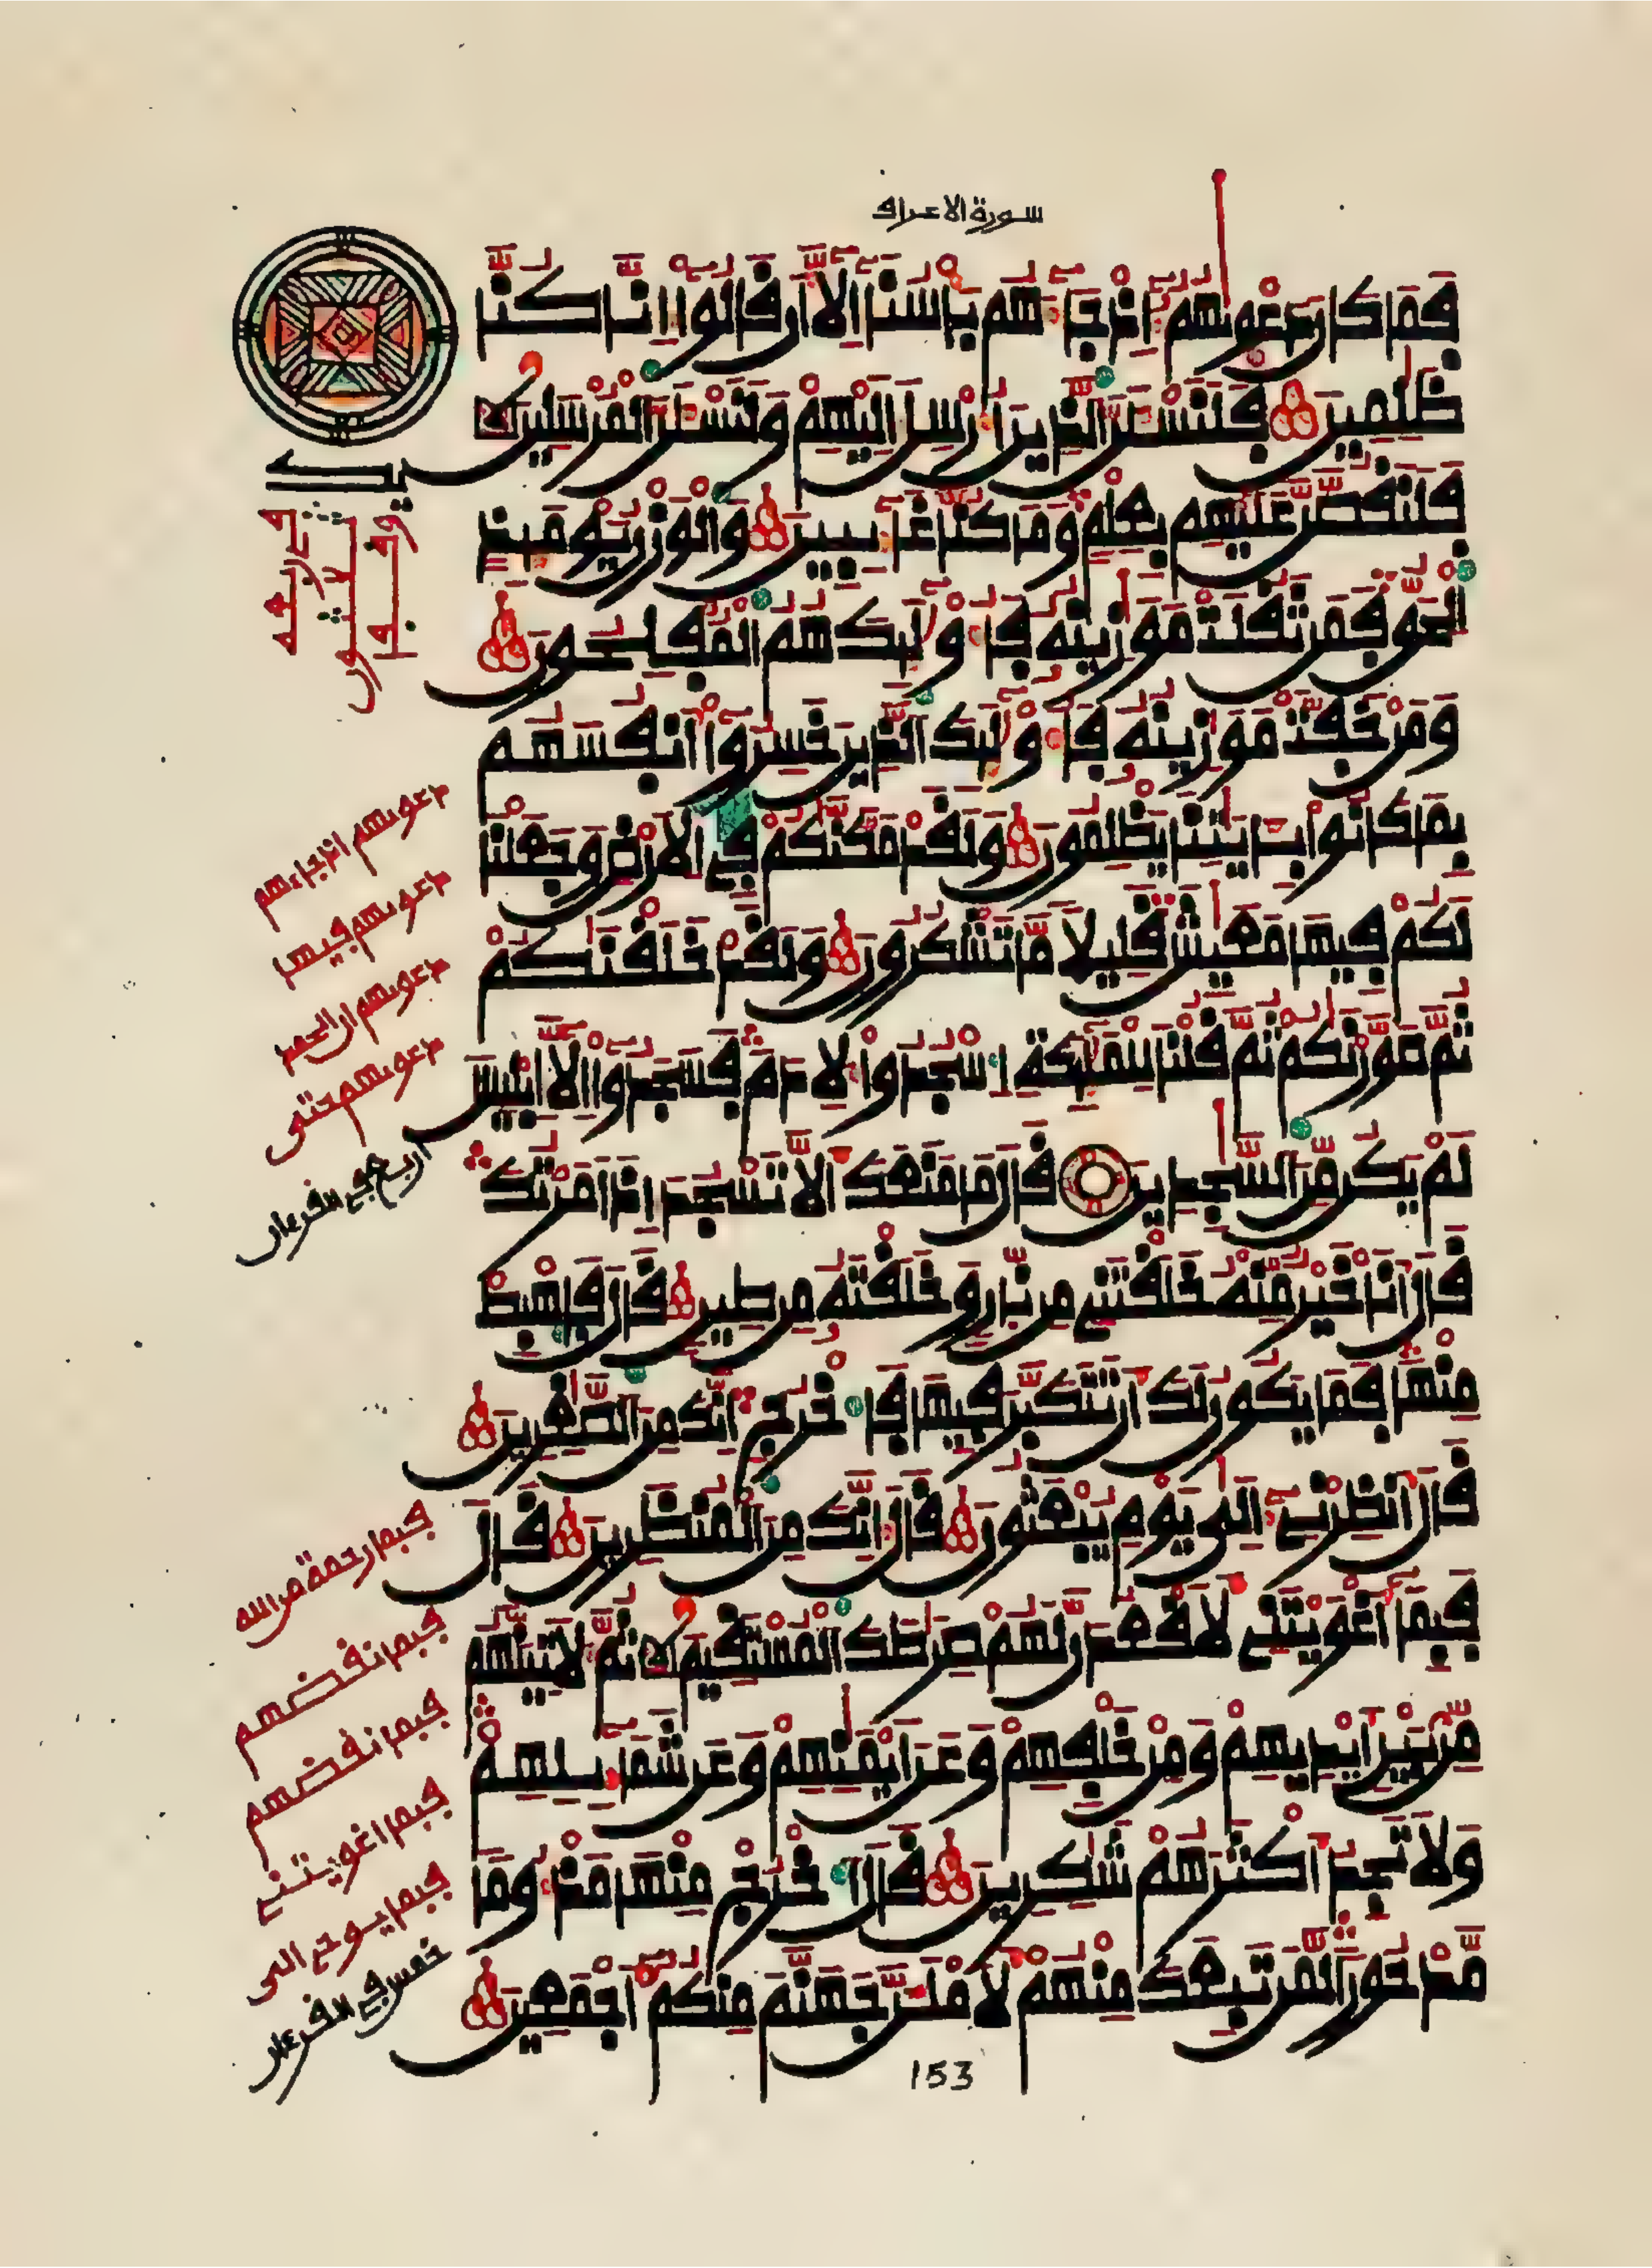 سورة الاعراف
فَمَا كَانَ دَعْوٜيٰهُمُۥٓ إِذْ جَآءَهُم بَأْسُنَآ إِلَّآ أَن قَالُوٓاْ إِنَّا كُنَّا
ظَٰلِمِينَ فَلَنَسْـَٔلَنَّ ٱلذِينَ أُرْسِلَ إِلَيْهِمْ وَلَنَسْـَٔلَنَّ ٱلْمُرْسَلِينَ
فَلَنَقُصَّنَّ عَلَيْهِم بِعِلْمٖ وَمَا كُنَّا غَآئِبِينَ وَٱلْوَزْنُ يَوْمَئِذٍ
ٱلْحَقُّ فَمَن ثَقُلَتْ مَوَٰزِينُهُۥ فَأُوْلَٰٓئِكَ هُمُ ٱلْمُفْلِحُونَ
وَمَنْ خَفَّتْ مَوَٰزِينُهُۥ فَأُوْلَٰٓئِكَ ٱلذِينَ خَسِرُوٓاْ أَنفُسَهُم
بِمَا كَانُواْ بِـَٔايَٰتِنَا يَظْلِمُونَ وَلَقَدْ مَكَّنَّٰكُمْ فِي ٱلْأَرْضِ وَجَعَلْنَا
لَكُمْ فِيهَا مَعَٰيِشَ قَلِيلٗا مَّا تَشْكُرُونَ وَلَقَدْ خَلَقْنَٰكُمْ
ثُمَّ صَوَّرْنَٰكُمْ ثُمَّ قُلْنَا لِلْمَلَٰٓئِكَةِ ٱسْجُدُواْ لِأٓدَمَ فَسَجَدُوٓاْ إِلَّآ إِبْلِيسَ
لَمْ يَكُن مِّنَ ٱلسَّٰجِدِينَ قَالَ مَا مَنَعَكَ أَلَّا تَسْجُدَ إِذَ أَمَرْتُكَ
قَالَ أَنَا خَيْرٞ مِّنْهُ خَلَقْتَنِي مِن نّارٖ وَخَلَقْتَهُۥ مِن طِينٖ قَالَ فَٱهْبِطْ
مِنْهَا فَمَا يَكُونُ لَكَ أَن تَتَكَبَّرَ فِيهَا فَٱخْرُجِ إِنَّكَ مِنَ ٱلصَّٰغِرِينَ
قَالَ أَنظِرْنِيٓ إِلَىٰ يَوْمِ يُبْعَثُونَ قَالَ إِنَّكَ مِنَ ٱلْمُنظَرِينَ قَالَ
فَبِمَآ أَغْوَيْتَنِي لَأَقْعُدَنَّ لَهُمْ صِرَٰطَكَ ٱلْمُسْتَقِيمَ ثُمَّ لَأٓتِيَنَّهُم
مِّنۢ بَيْنِ أَيْدِيهِمْ وَمِنْ خَلْفِهِمْ وَعَنَ أَيْمَٰنِهِمْ وَعَن شَمَآئِلِهِمْ
وَلَا تَجِدُ أَكْثَرَهُمْ شَٰكِرِينَ قَالَ ٱخْرُجْ مِنْهَا مَذْءُوماٗ
مَّدْحُوراٗ لَّمَن تَبِعَكَ مِنْهُمْ لَأَمْلَأَنَّ جَهَنَّمَ مِنكُمُۥٓ أَجْمَعِينَ
دعويهم اذ جاءهم
دعويهم فيها
دعويهم ان الحمد
دعويهم حتى
اربع في القرءان
فبما رحمة من الله
فبما نقضهم
فبما نقضهم
فبما اغويتني
فبما يوحي الى
خمس في القرءان
153